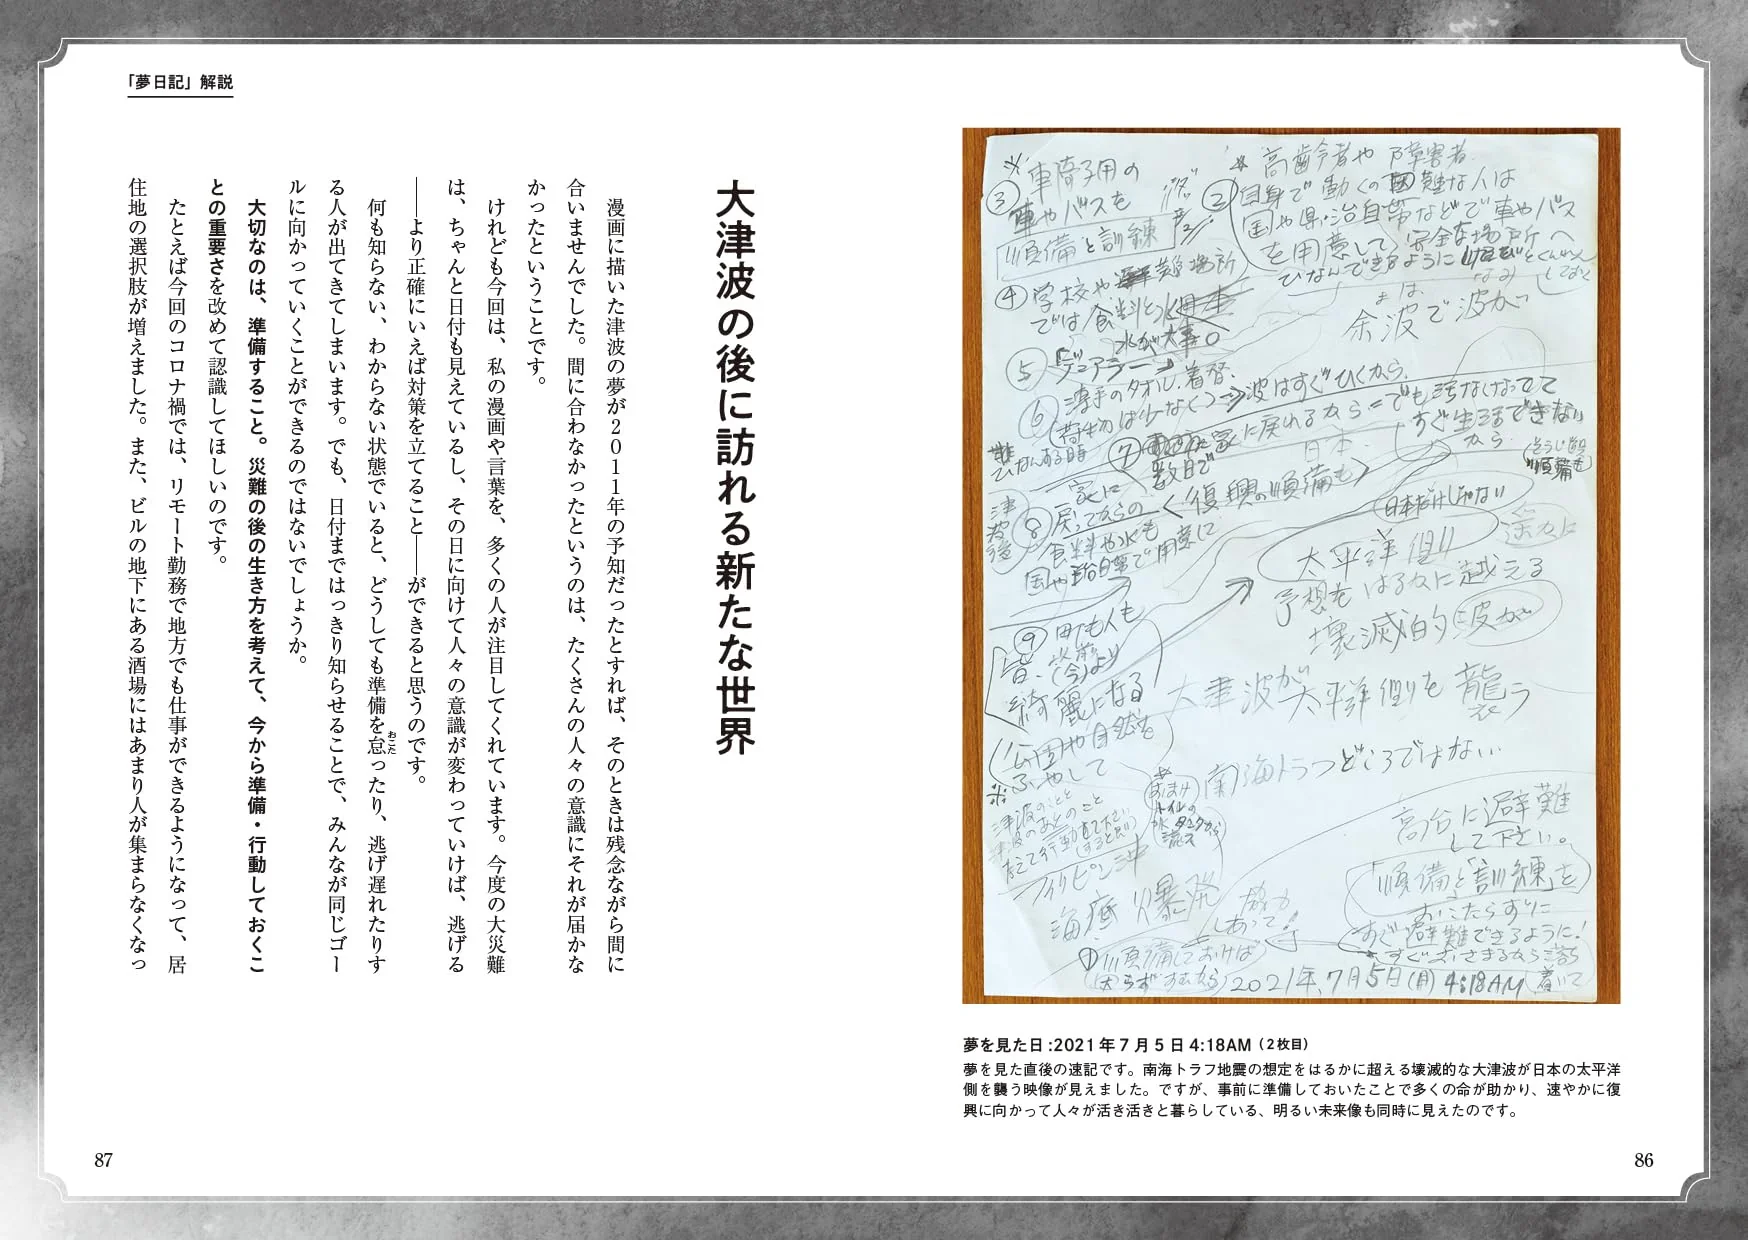 「夢日記」解説
※車椅子用の
③車やバスを
準備と訓練
④学校や避難場所
では食料と水
水が大事。
⑤
⑥薄手のタオル、着替、
(荷物は少なく)
ひなんする時
⑦
数日で
家に戻れるから
津波後
⑧家に
戻ってからの
食料や水も
国や自治体で用意して
<復興の準備も>
⑨町も人も
皆、以前
(今)より
綺麗になる
公園や自然を
ふやして
※津波のことと
津波のあとのこと
フィリピン沖
海底爆発
①準備しておけば
困らずすむから
※高齢者や障害者
②自身で動くの困難な人は
国や県、自治体などで車やバス
を用意して、安全な場所へ
ひなんできるように
余波で波が
波はすぐひくから、
でも
すぐ生活できない
から
日本
日本だけじゃない
太平洋側
予想をはるかに越える
壊滅的な波が
大津波が太平洋側を襲う
南海トラフどころではない…
高台に避難
して下さい。
「準備と訓練」を
おこたらずに
すぐ避難できるように!
すぐおさまるから落ち
着いて
2021年、7月5日(月)4:18AM
夢を見た日:2021年7月5日4:18AM(2枚目)
夢を見た直後の速記です。南海トラフ地震の想定をはるかに超える壊滅的な大津波が日本の太平洋
側を襲う映像が見えました。ですが、事前に準備しておいたことで多くの命が助かり、速やかに復
興に向かって人々が活き活きと暮らしている、明るい未来像も同時に見えたのです。
86
大津波の後に訪れる新たな世界
漫画に描いた津波の夢が2011年の予知だったとすれば、そのときは残念ながら間に
合いませんでした。間に合わなかったというのは、たくさんの人々の意識にそれが届かな
かったということです。
けれども今回は、私の漫画や言葉を、多くの人が注目してくれています。今度の大災難
は、ちゃんと日付も見えているし、その日に向けて人々の意識が変わっていけば、逃げる
――より正確にいえば対策を立てること――ができると思うのです。
何も知らない、わからない状態でいると、どうしても準備を怠ったり、逃げ遅れたりす
おこた
る人が出てきてしまいます。でも、日付まではっきり知らせることで、みんなが同じゴー
ルに向かっていくことができるのではないでしょうか。
大切なのは、準備すること。災難の後の生き方を考えて、今から準備・行動しておくこ
との重要さを改めて認識してほしいのです。
たとえば今回のコロナ禍では、リモート勤務で地方でも仕事ができるようになって、居
住地の選択肢が増えました。また、ビルの地下にある酒場にはあまり人が集まらなくなっ
87